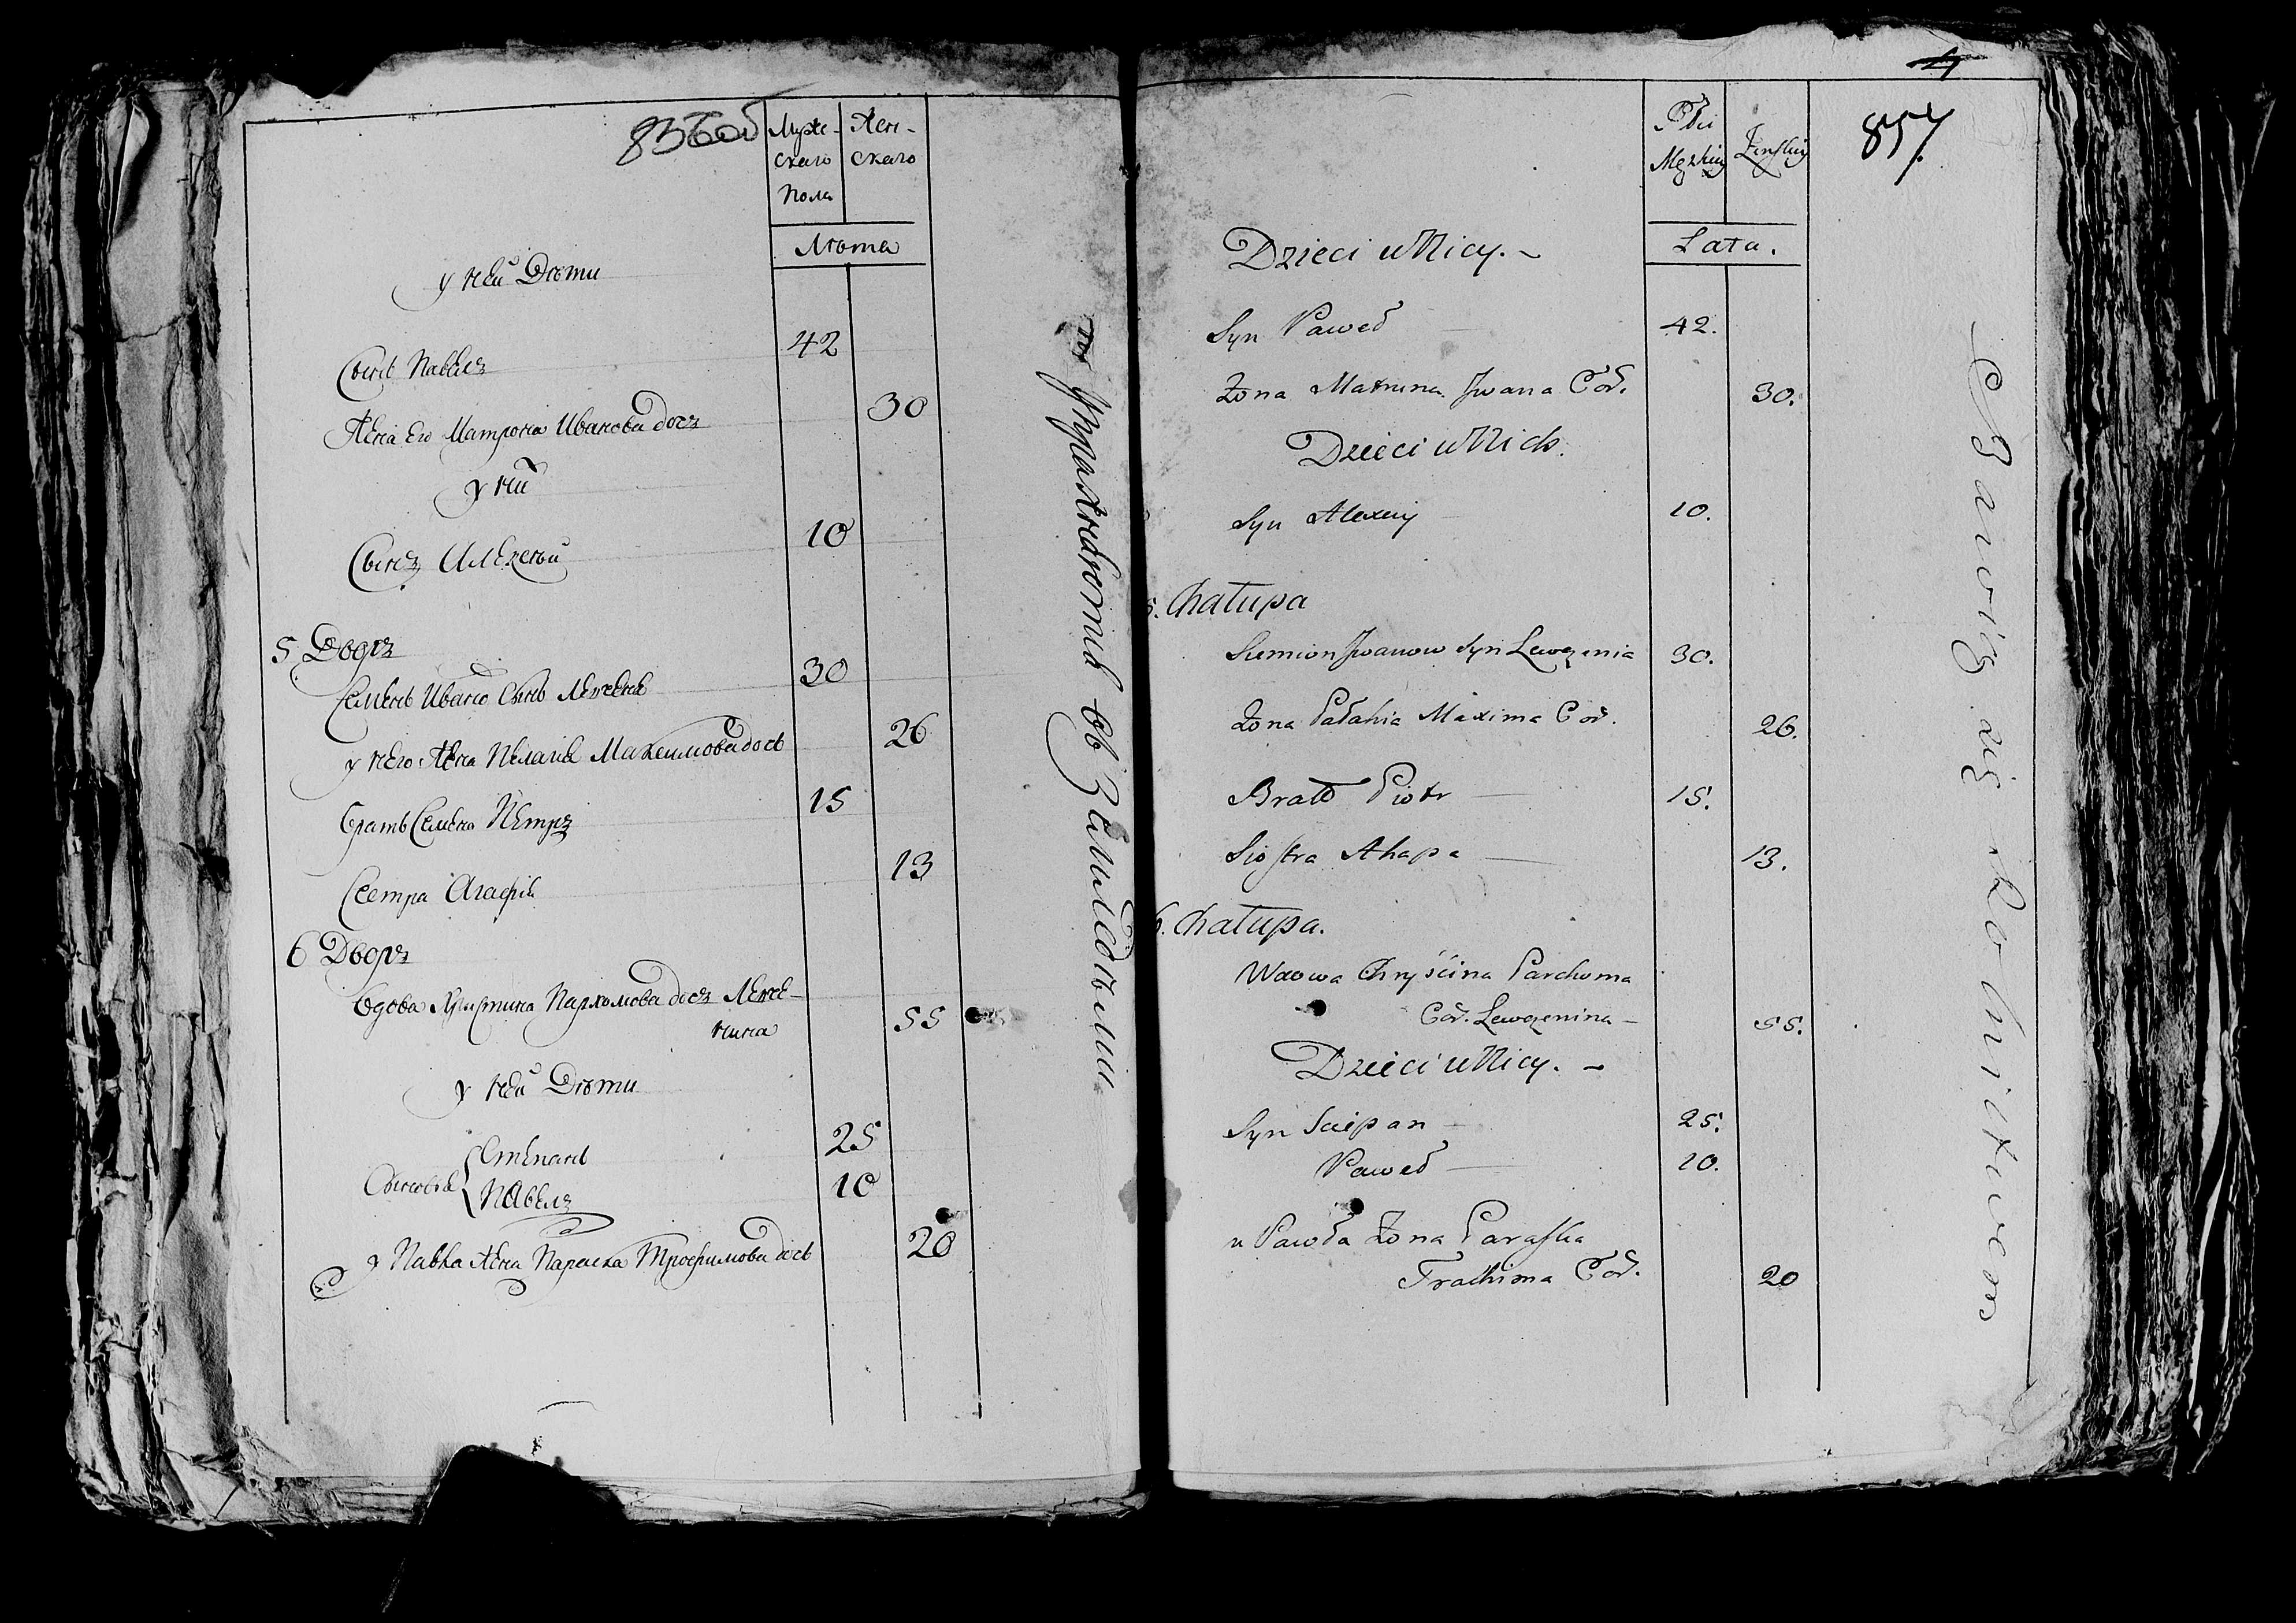 836об
Муже-
скаго
пола
Жен-
скаго
Лѣта
у ней Дѣти
Сынъ Павелъ 42
Жена Его Матрона Иванова дочъ 30
у ни
Сынъ Алексѣй 10
5 Дворъ
Семенъ Ивано Сынъ Левченя 30
у него Жена Пелагея Максимова дочь 26
братъ Семена Петръ 15
Сестра Агафія 13
6 Дворъ
Вдова Христина Пархомова дочъ Левче-
нина 55
у ней Дѣти
Сыновья
Степанъ 25
Павелъ 10
у Павла Жена Параска Трофимова дочь 20
въ Земледѣліи
4
857
Płci
Męzkiey
Żeńskiey
Lata.
Dzieci u Nicy.
Syn Paweł 42.
Żona Matruna Jwana Cór. 30.
Dzieci u Nich.
Syn Alexiey 10.
5. Chałupa
Siemion Jwanow Syn Lewczenia 30.
Żona Pałahia Maxima Cór. 26.
Bratt Piotr 15.
Siostra Ahapa 13.
6. Chałupa.
Wdowa Chryścina Parchoma
Cór. Lewczenina 55.
Dzieci u Nicy.
Syn Sciepan 25.
Paweł 10.
u Pawła Żona Paraska
Trachima Cór. 20
Bawią się Rolnictwem